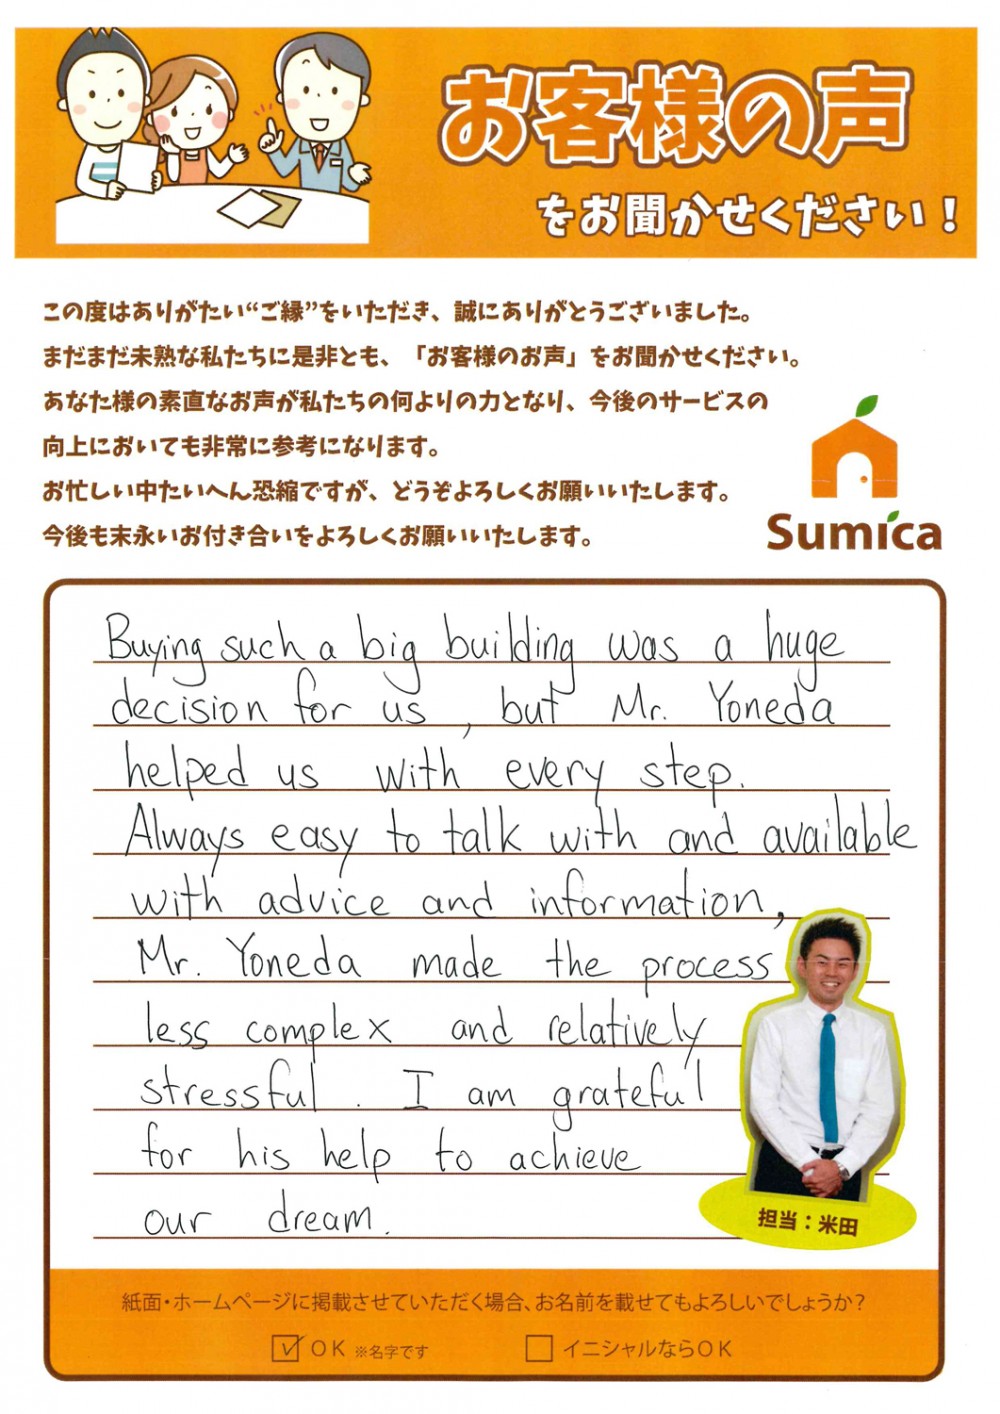 お客様の声
をお聞かせください!
この度はありがたい“ご縁”をいただき、誠にありがとうございました。
まだまだ未熟な私たちに是非とも、「お客様のお声」をお聞かせください。
あなた様の素直なお声が私たちの何よりの力となり、今後のサービスの
向上においても非常に参考になります。
お忙しい中たいへん恐縮ですが、どうぞよろしくお願いいたします。
今後も末永いお付き合いをよろしくお願いいたします。
Sumica
Buying such a big building was a huge
decision for us, but Mr. Yoneda
helped us with every step.
Always easy to talk with and available
with advice and information,
Mr. Yoneda made the process
less complex and relatively
stressful. I am grateful
for his help to achieve
our dream.
担当:米田
紙面・ホームページに掲載させていただく場合、お名前を載せてもよろしいでしょうか?
OK ※名字です
イニシャルならOK